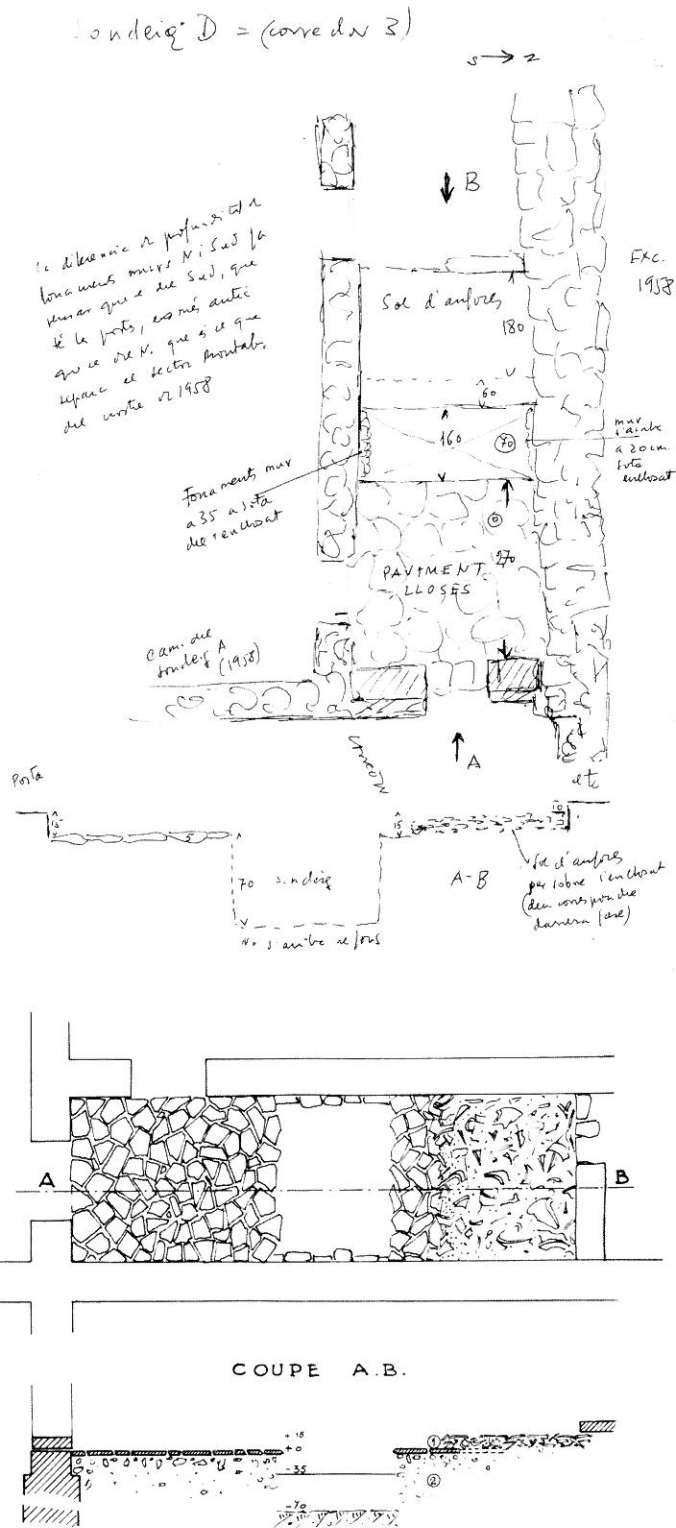 Sondeig D = (corredor 3)
S → N
B
La diferencia de profunditat de
fonaments murs N i Sud fa
pensar que el del Sud, que
té la porta, es més antic
que el del N. que és el que
separa el sector Montab.
del nostre de 1958
EXC.
1958
Sol d'anfores
180
60
160
70
mur
s'acaba
a 20 cm.
sota
enllosat
Fonaments mur
a 35 a sota
de l'enllosat
0
270
PAVIMENT
LLOSES
Cam. del
sondeig A
(1958)
A
Porta
15
5
15
10
70 sondeig
A-B
Sol d'anfores
per sobre l'enllosat
(deu correspondre
darrera fase)
No s'arriba al fons
A
B
COUPE A.B.
+ 15
± 0
-35
-70
1
2